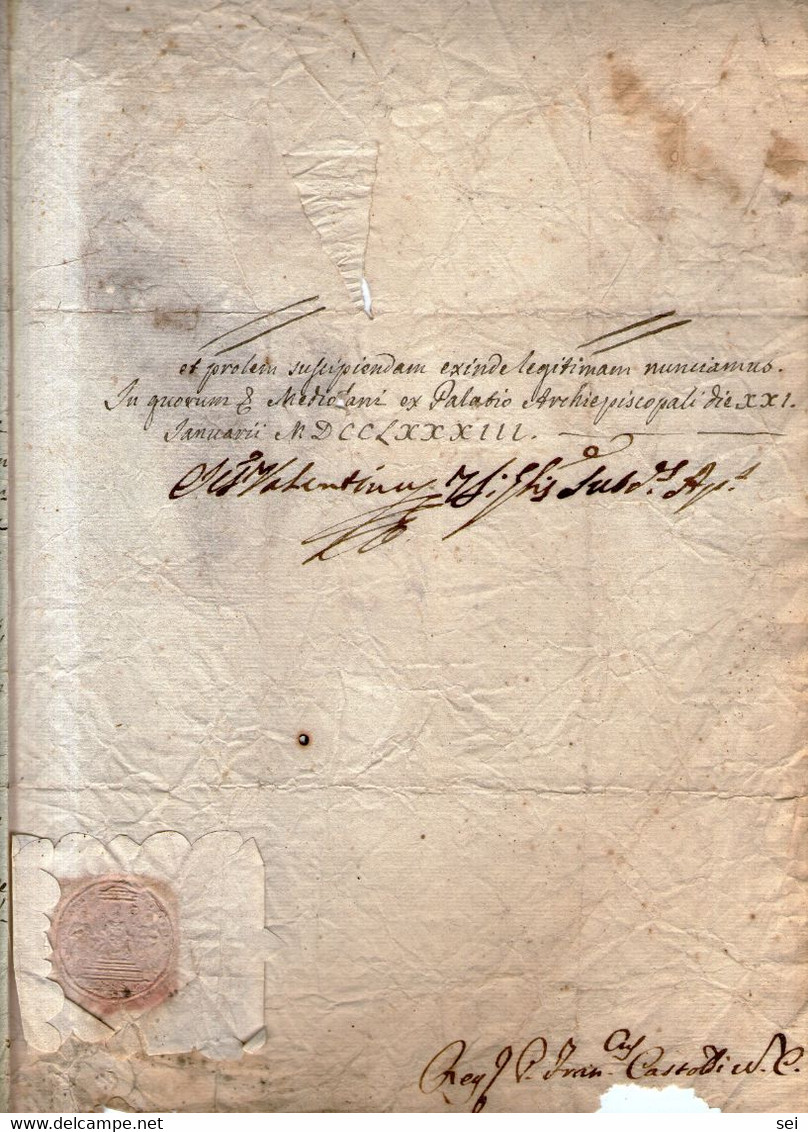 et prolem suscipiendam exinde legitimam nunciamus.
In quorum & Mediolani ex Palatio Archiepiscopali die XXI.
Januarii MDCCLXXXIII.
Valentinus Subd.s Ap.s
P. Fran.cus Castoldi N. C.
sei